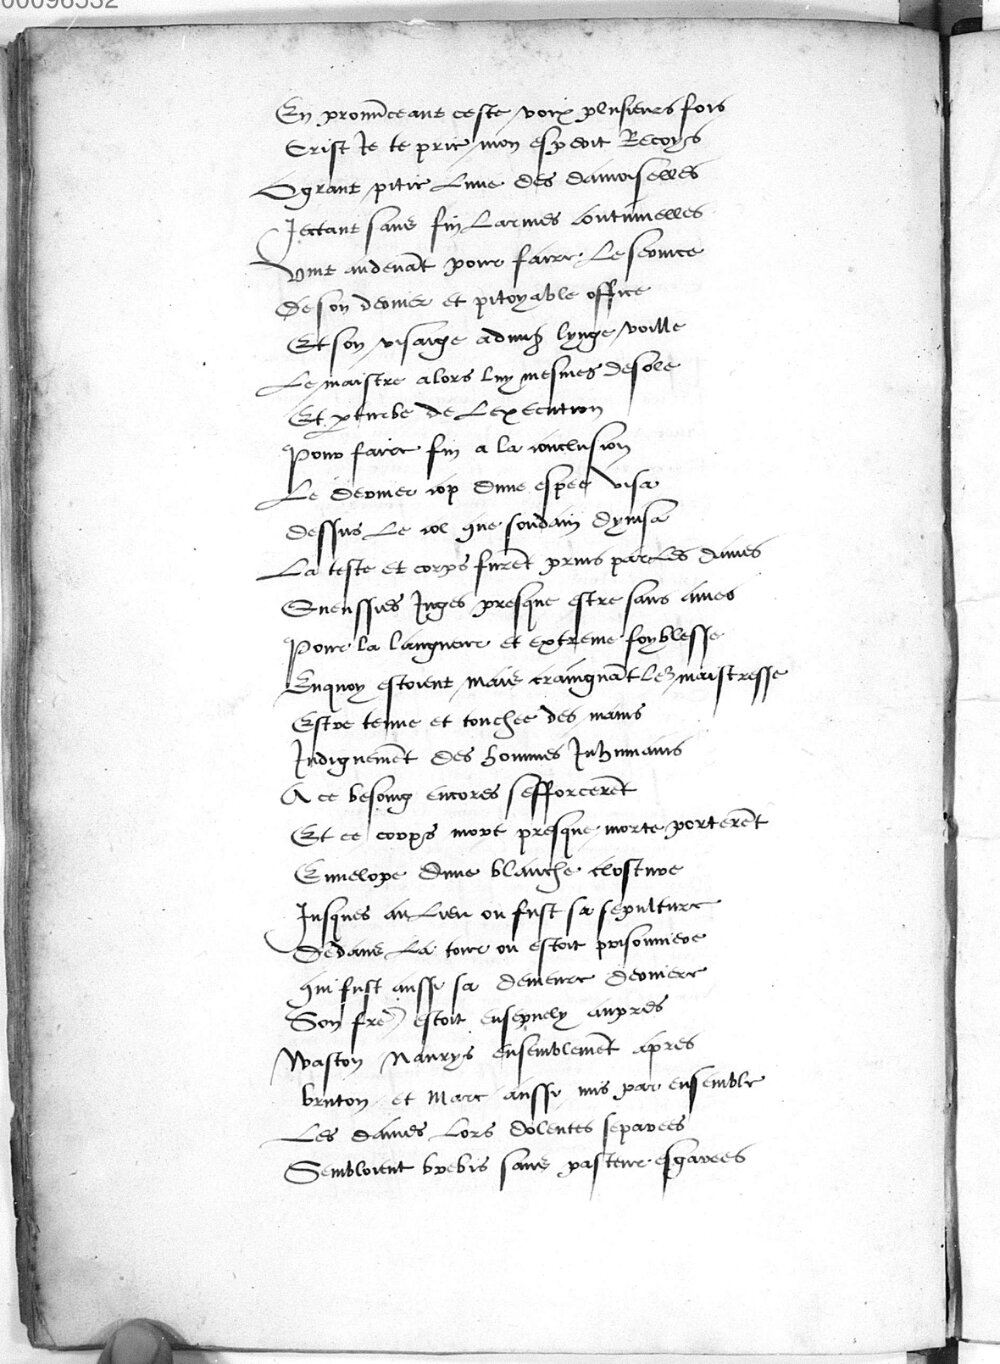 00096332
En prononceant ceste voix plusieurs fois
Crist Je te prie mon esperit Recoys
O grant pitie Lune des damoiselles
Jectant sans fin Larmes continuelles
Vint audenāt pour faire Le service
De son dernier et pitoyable office
Et son visaige a dung lynge voille
Le maistre alors luy mesmes desole
Et p̱turbe de Lexecution
Pour faire fin a la conclusion
Le dernier cop dune espee visa
dessus Le col que soudain dyvisa
La teste et corps furēt prins par Les dames
Queussies Juges presque estre sans ames
Pour la langueur et extreme foyblesse
Enquoy estoient mais craingnāt Le maistresse
Estre tenue et touchee des mains
Indignemēt des hommes Inhumains
A ce besoing encores sefforcerēt
Et ce corps mort presque morte porterēt
Envelope dune blanche closture
Jusques au Lieu ou fust sa sepulture
Dedans La tour ou estoit prisonniere
qui fust aussi sa demeure derniere
Son fre estoit ensepvely aupres
Waston Naurys ensemblemēt apres
bruton et Marc aussi mis par ensemble
Les dames Lors dolentes separees
Sembloient brebis sans pasteur esgarees